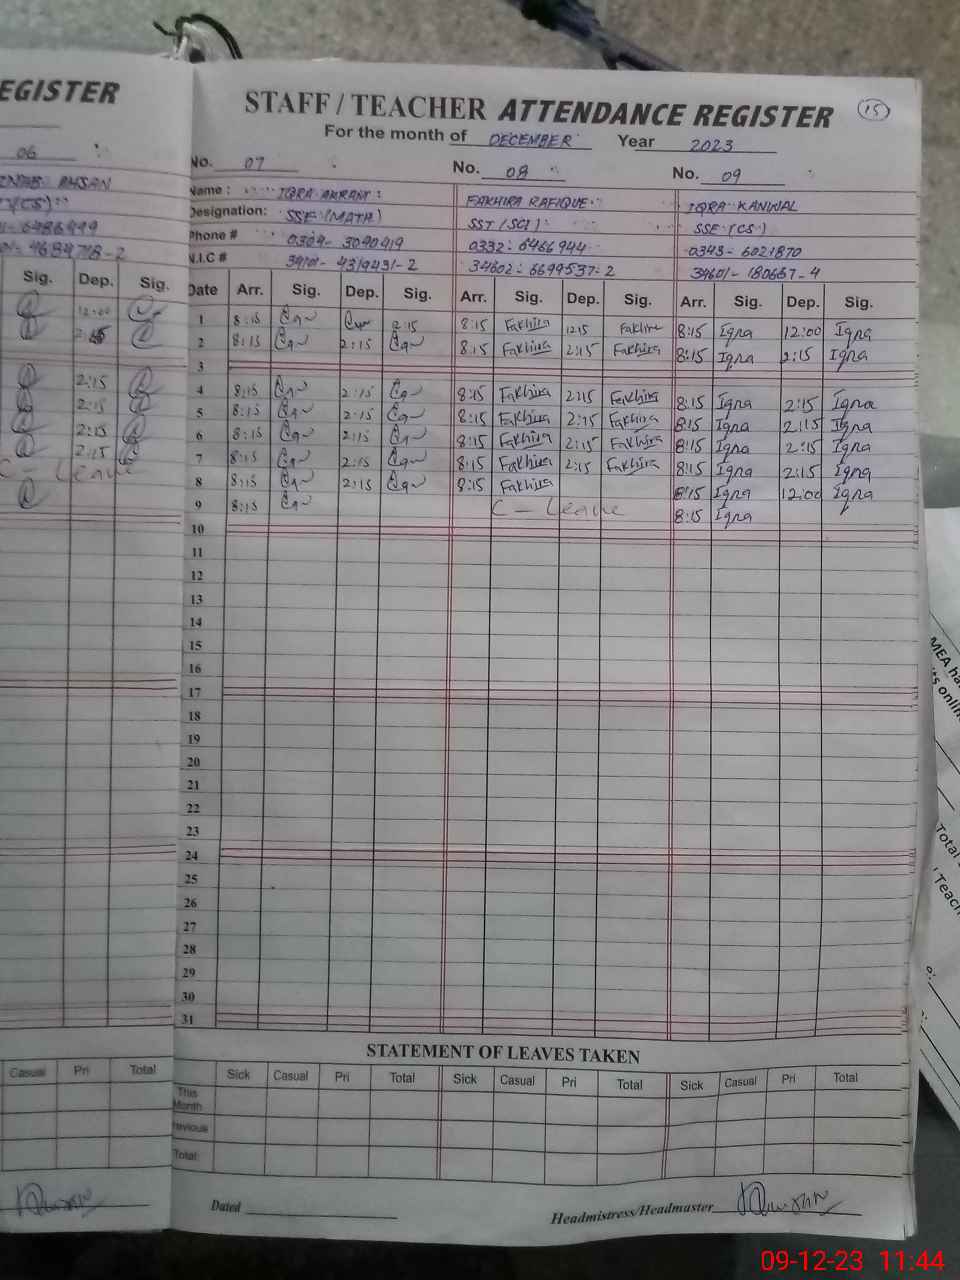 EGISTER
06
AHSAN
Sig. Dep. Sig.
12:00
2:15
2:15
2:15
2:15
2:15
C - Leave
Casual Pri Total
STAFF / TEACHER ATTENDANCE REGISTER 15
For the month of DECEMBER Year 2023
No. 07 No. 08 No. 09
Name : IQRA AKRAM FAKHIRA RAFIQUE IQRA KANWAL
Designation: SSE (MATH) SST (SCI) SSE (CS)
Phone # 0332:6466944 0343-6021870
N.I.C # 34602:6699537:2
Date Arr. Sig. Dep. Sig. Arr. Sig. Dep. Sig. Arr. Sig. Dep. Sig.
1 8:15 2:15 8:15 Fakhira 12:15 Fakhira 8:15 Iqra 12:00 Iqra
2 8:15 2:15 8:15 Fakhira 2:15 Fakhira 8:15 Iqra 2:15 Iqra
3
4 8:15 2:15 8:15 Fakhira 2:15 Fakhira 8:15 Iqra 2:15 Iqra
5 8:15 2:15 8:15 Fakhira 2:15 Fakhira 8:15 Iqra 2:15 Iqra
6 8:15 2:15 8:15 Fakhira 2:15 Fakhira 8:15 Iqra 2:15 Iqra
7 8:15 2:15 8:15 Fakhira 2:15 Fakhira 8:15 Iqra 2:15 Iqra
8 8:15 2:15 8:15 Fakhira 8:15 Iqra 12:00 Iqra
9 8:15 C - Leave 8:15 Iqra
10
11
12
13
14
15
16
17
18
19
20
21
22
23
24
25
26
27
28
29
30
31
STATEMENT OF LEAVES TAKEN
Sick Casual Pri Total Sick Casual Pri Total Sick Casual Pri Total
This
Month
evious
Total
Dated
Headmistress/Headmaster
MEA ha
Total
Teach
09-12-23 11:44